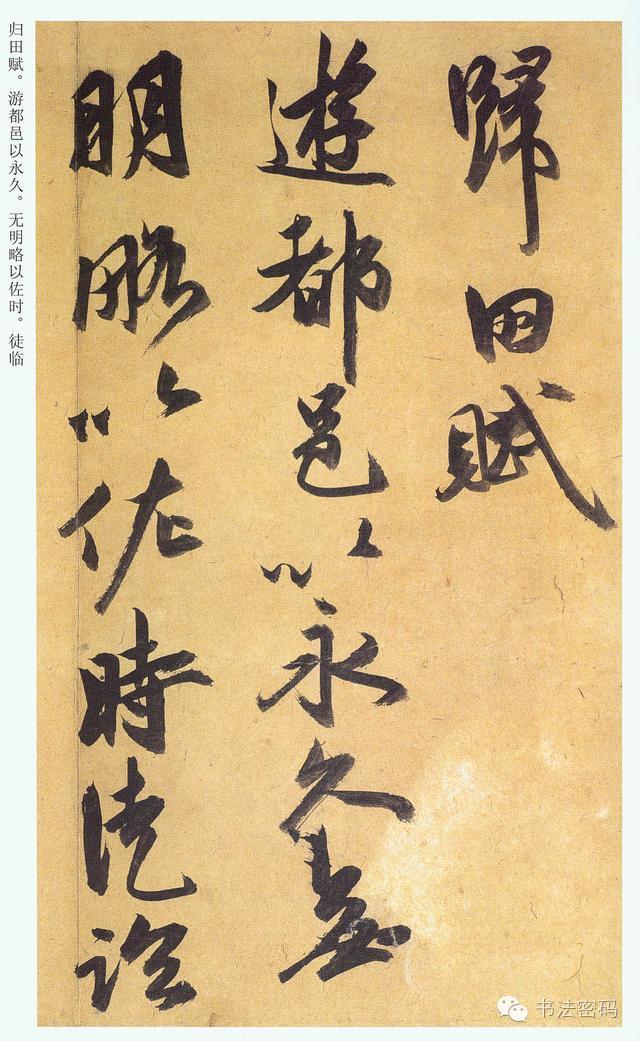 歸田賦
遊都邑以永久無
明略以佐時徒臨
归田赋。游都邑以永久。无明略以佐时。徒临
书法密码